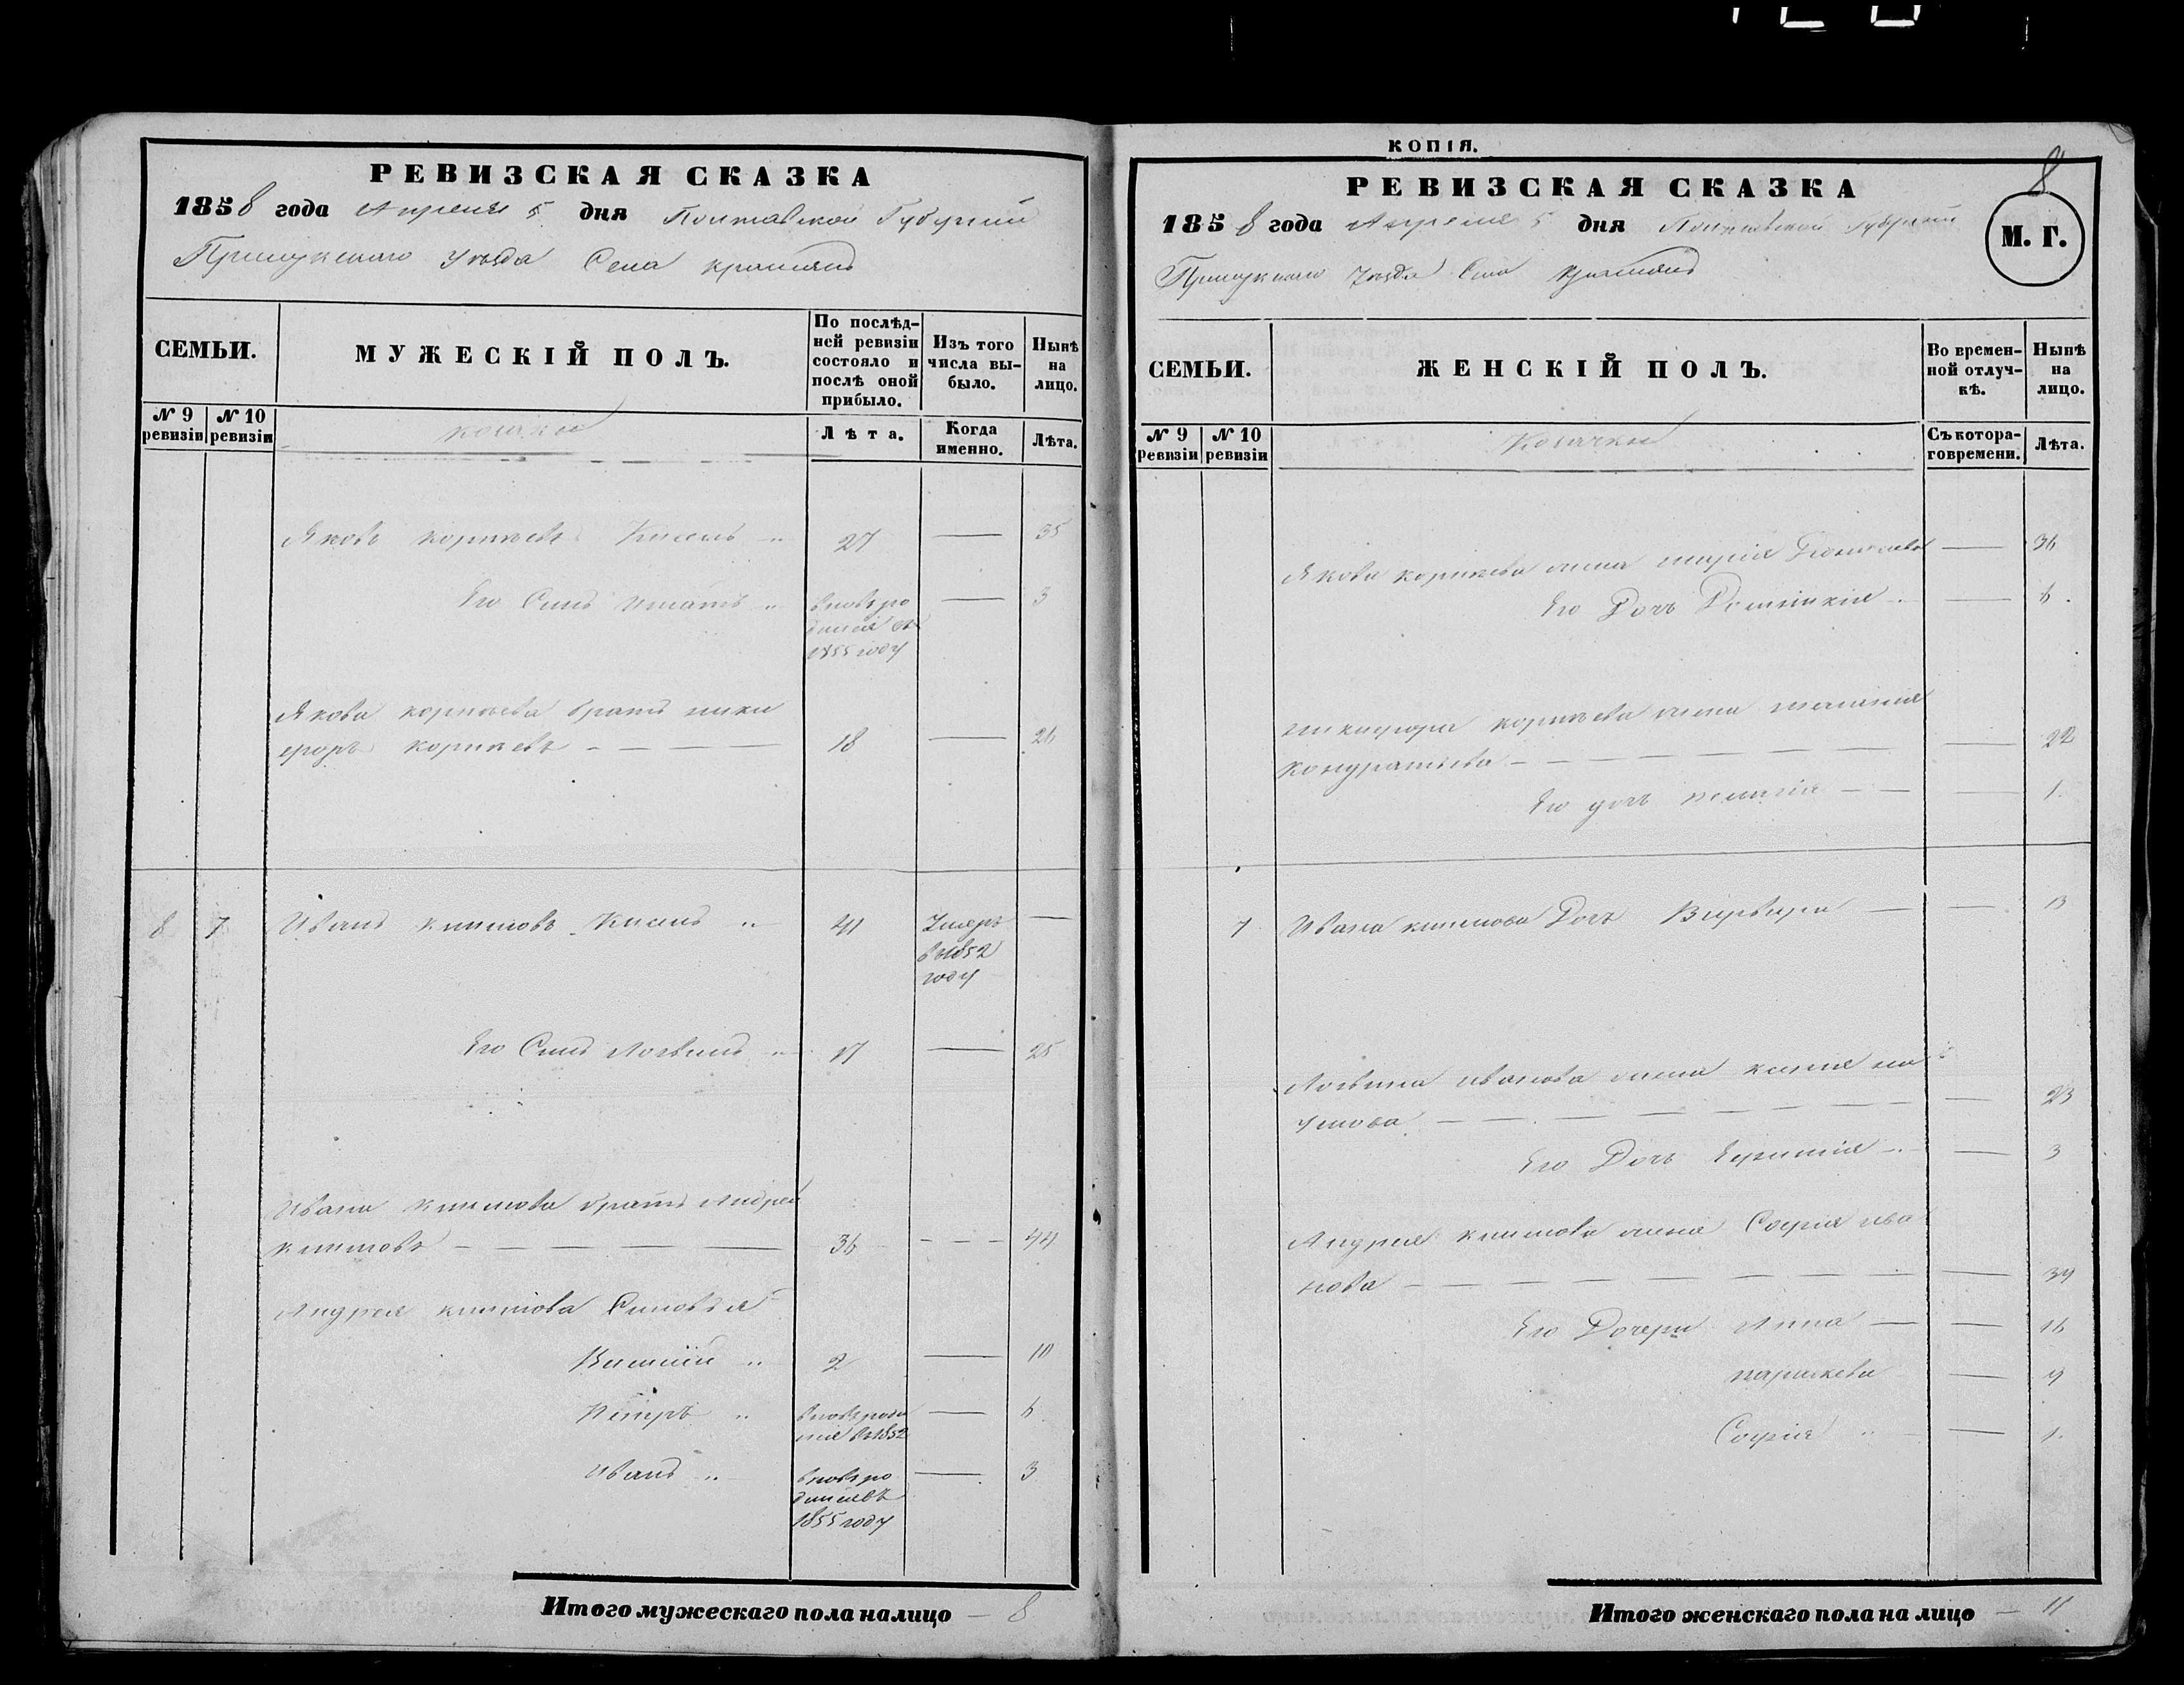 РЕВИЗСКАЯ СКАЗКА
1858 года Апреля 5 дня Полтавской Губернии
Прилукского Уезда Села
СЕМЬИ.
МУЖЕСКІЙ ПОЛЪ.
По послѣд-
ней ревизіи
состояло и
послѣ оной
прибыло.
Изъ того
числа вы-
было.
Нынѣ
на
лицо.
№ 9
ревизіи
№ 10
ревизіи
козаки
Лѣта.
Когда
именно.
Лѣта.
Яковъ корнѣевъ Кисель „ 27 — 35
Его Синъ „ вновь ро — 3
1855 году
Якова корнѣева братъ ники
форъ корнѣевъ — — — 18 — 26
8 7 Иванъ климовъ Кисель „ 41 Умеръ —
въ 1852
году
Его Синъ Логвинъ „ 17 — 25
Ивана климова братъ Андрей
климовъ — — — — — 36 — — — 44
Андрея климова Синовья
Василій „ 2 — 10
Петръ „ — 6
въ 1852
Иванъ „ вновь ро — 3
1855 году
Итого мужескаго пола налицо — 8
КОПІЯ.
8
РЕВИЗСКАЯ СКАЗКА
1858 года Апреля 5 дня Полтавской Губернии
М. Г.
Прилукского Уезда Села
СЕМЬИ.
ЖЕНСКІЙ ПОЛЪ.
Во времен-
ной отлуч-
кѣ.
Нынѣ
на
лицо.
№ 9
ревизіи
№ 10
ревизіи
Козачки
Съ котора-
го времени.
Лѣта.
Якова корнѣева жена марія — 36
Его Дочь Домникія — 6
никифора корнѣева жена
кондратьева — — — — — 22
Его дочь пелагія — — — 1
7 Ивана климова Дочь Варвара — — 13
Логвина иванова жена ксенія на
умова — — — — — — 23
Его Дочь — 3
Андрея климова жена Софія ива
нова — — — — — — — 39
Его Дочери Анна — — 16
параскева — 9
Софія „ — 1
Итого женскаго пола на лицо — 11